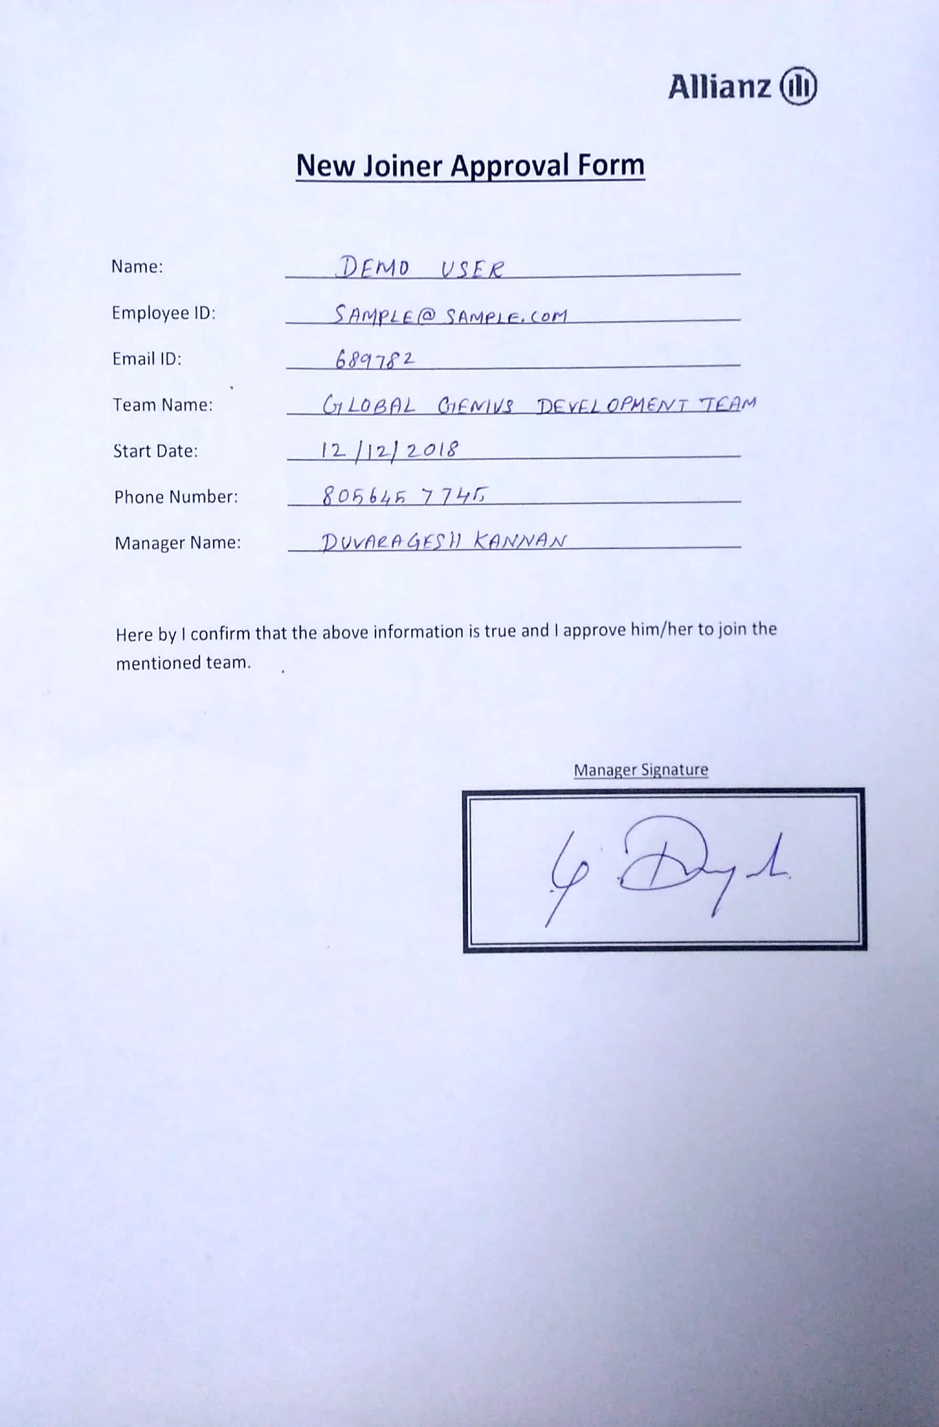 Allianz
New Joiner Approval Form
Name: DEMO USER
Employee ID: SAMPLE@SAMPLE.COM
Email ID: 689782
Team Name: GLOBAL GENIUS DEVELOPMENT TEAM
Start Date: 12/12/2018
Phone Number: 805645 7745
Manager Name: DUVARAGESH KANNAN
Here by I confirm that the above information is true and I approve him/her to join the
mentioned team.
Manager Signature